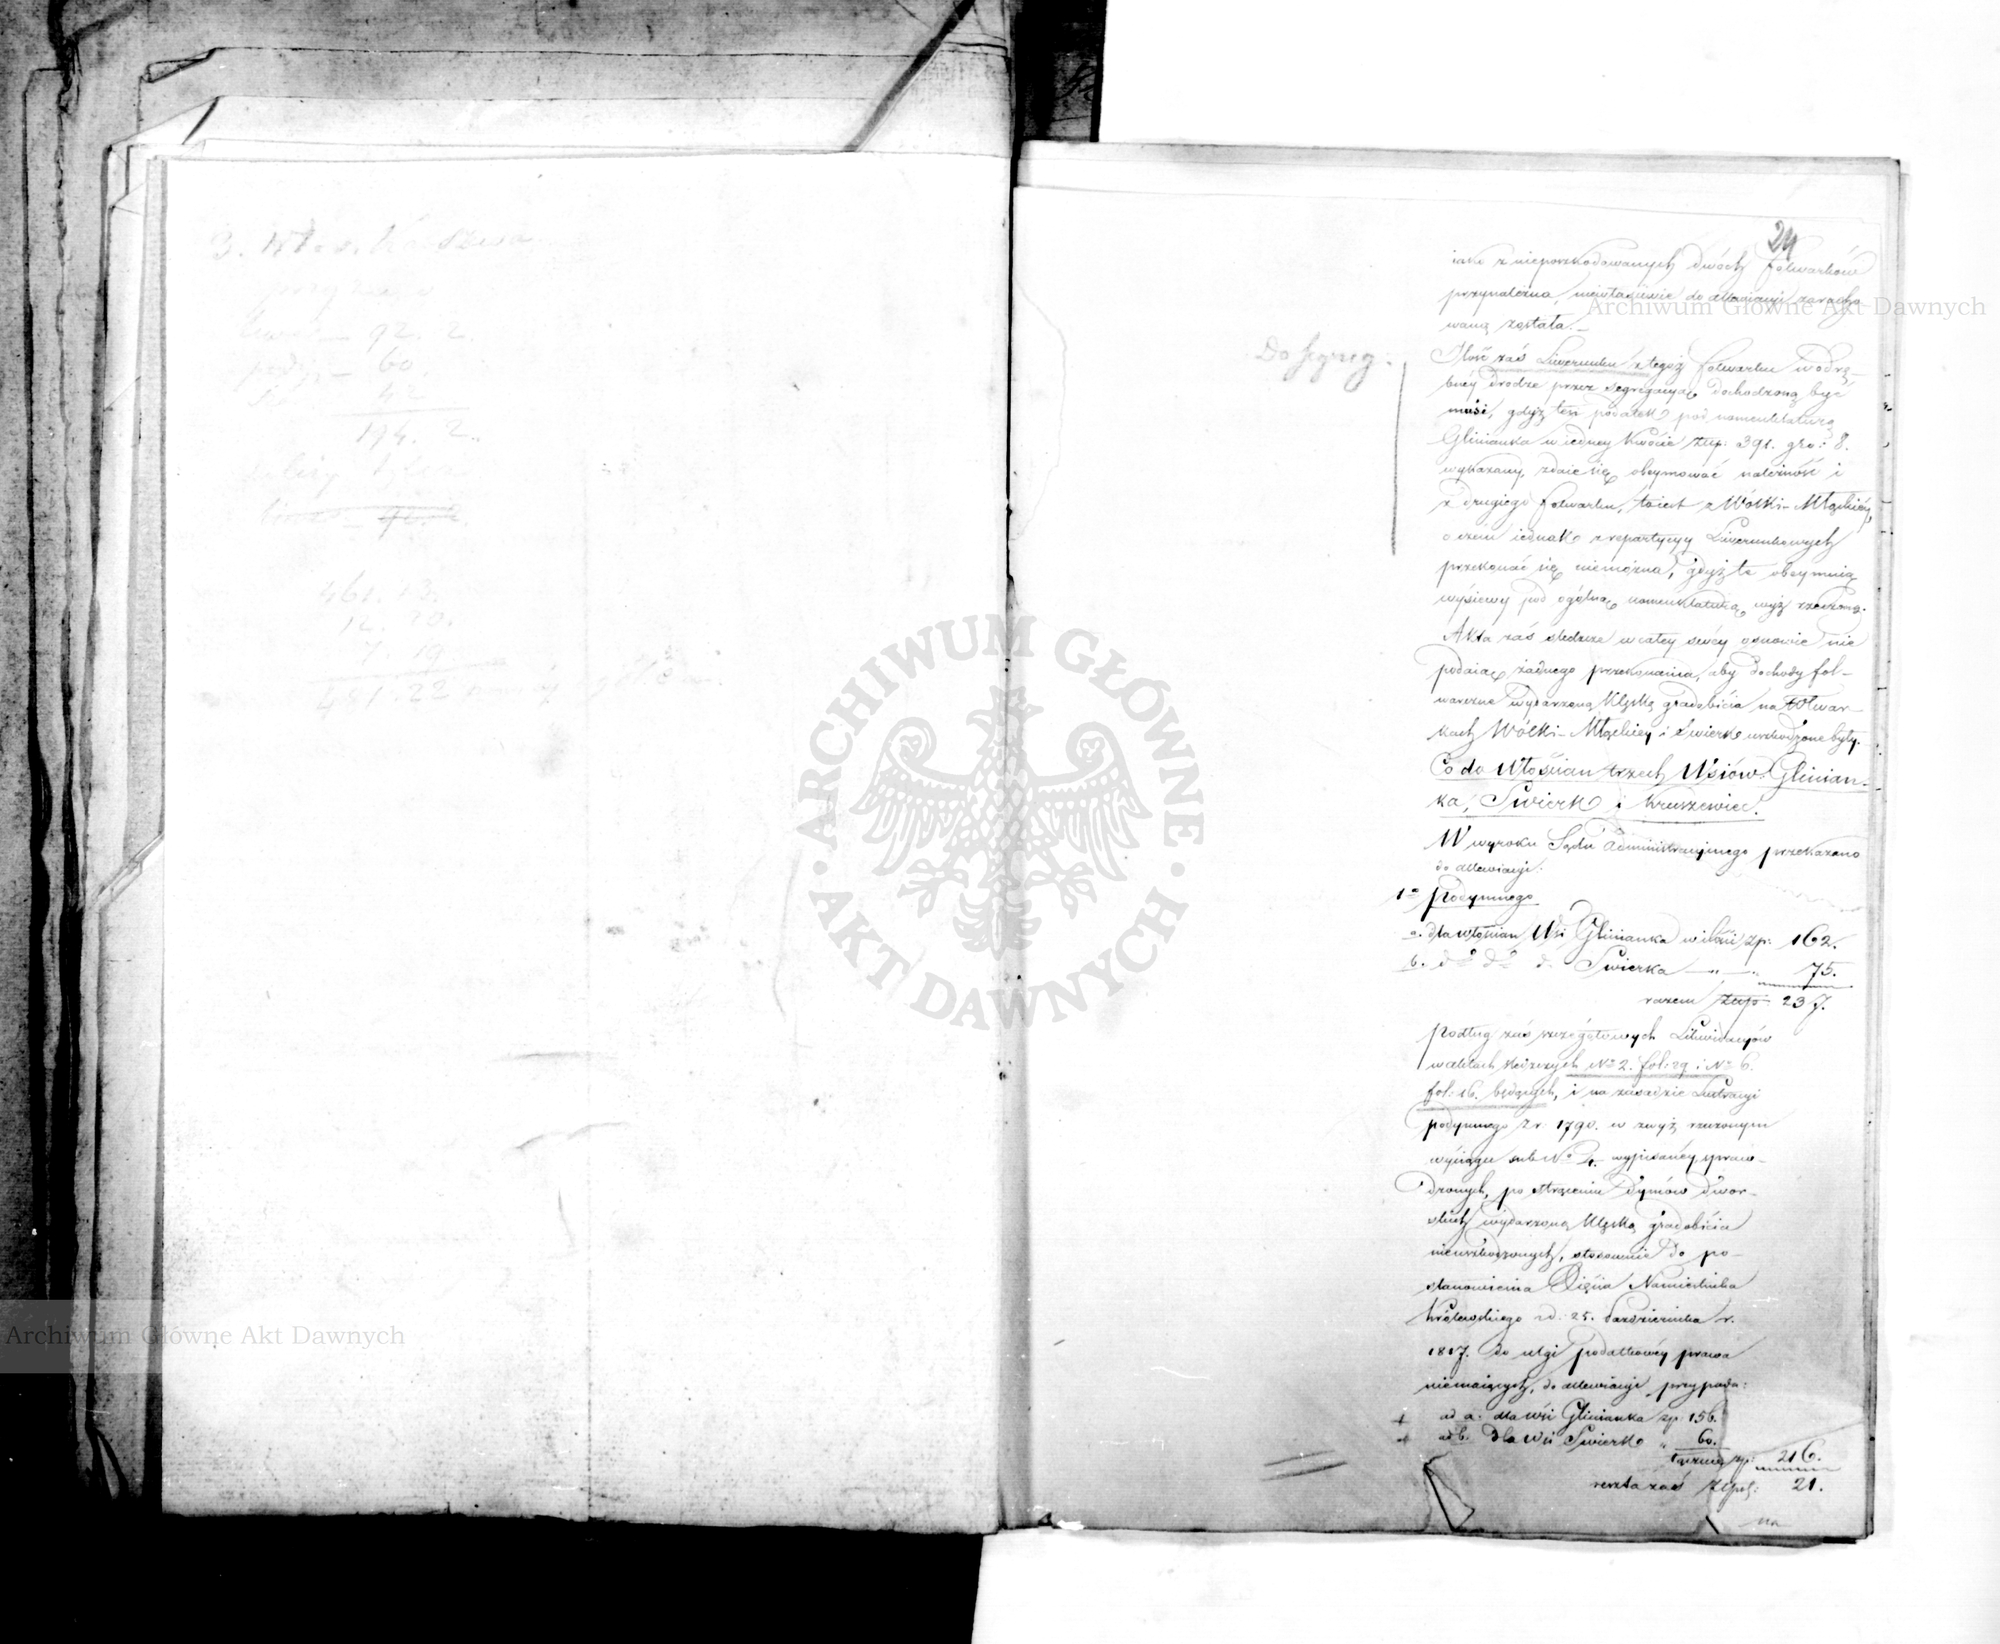 3. Włos. Karczewa
92. 2.
60.
42
194. 2.
461. 13.
12. 20.
7. 19
481. 22
24
iako z nieposzkodowanych dwóch folwarków
przynależna, niewłaściwie do allewiacyi zaracho
waną została.
Do segreg:
Ilość zaś Liwerunku z tegoż folwarku w odrę-
bney drodze przez segregacyą dochodzoną być
musi, gdyż ten podatek pod nomenklaturą
Glinianka w iedney kwocie złp: 391. gro: 8.
wykazany, zdaie się obeymować należność i
z drugiego folwarku, to iest z Wólki-Mlądzkiéy,
o czém iednak z repartycyy Liwerunkowych
przekonać się niemożna, gdyż te obeymuią
wysiewy pod ogólną nomenklaturą wyż rzeczoną.
Akta zaś śledcze w całey swéy osnowie nie
podaią żadnego przekonania, aby dochody fol-
warczne wydarzoną klęską gradobicia na folwar-
kach Wólki-Mlądzkiey i Swierk uszkodzone były.
Co do Włościan trzech Wsiów Glinian-
ka, Swierk i Kruszewiec.
W wyroku Sądu Administracyinego przekazano
do allewiacyi.
1o Podymnego
a. dla włościan Wsi Glinianka w ilości zp: 162.
b. do do d. Swierka — " — " 75.
razem złp 237.
Podług zaś szczegółowych Likwidacyów
w aktach śledczych No 2. fol: 29 i No 6.
fol: 16. będących, i na zasadzie Lustracyi
podymnego z r: 1790. w zwyż rzeczonym
wyciągu sub No wypisanéy, spraw-
dzonych, po strąceniu dymów dwor-
skich wydarzoną klęską gradobicia
nieuszkodzonych, stosownie do po-
stanowienia Xięcia Namiestnika
Królewskiego z d: 25. Października r.
1817. do ulgi podatkowéy prawa
niemaiących, do allewiacyi przypada:
+ ad a. dla wsi Glinianka zp: 156.
+ ad b. Dla wsi Swierk " 60.
łącznie zp: 216.
reszta zaś złpol: 21.
na
Archiwum Główne Akt Dawnych
Archiwum Główne Akt Dawnych
ARCHIWUM GŁÓWNE AKT DAWNYCH